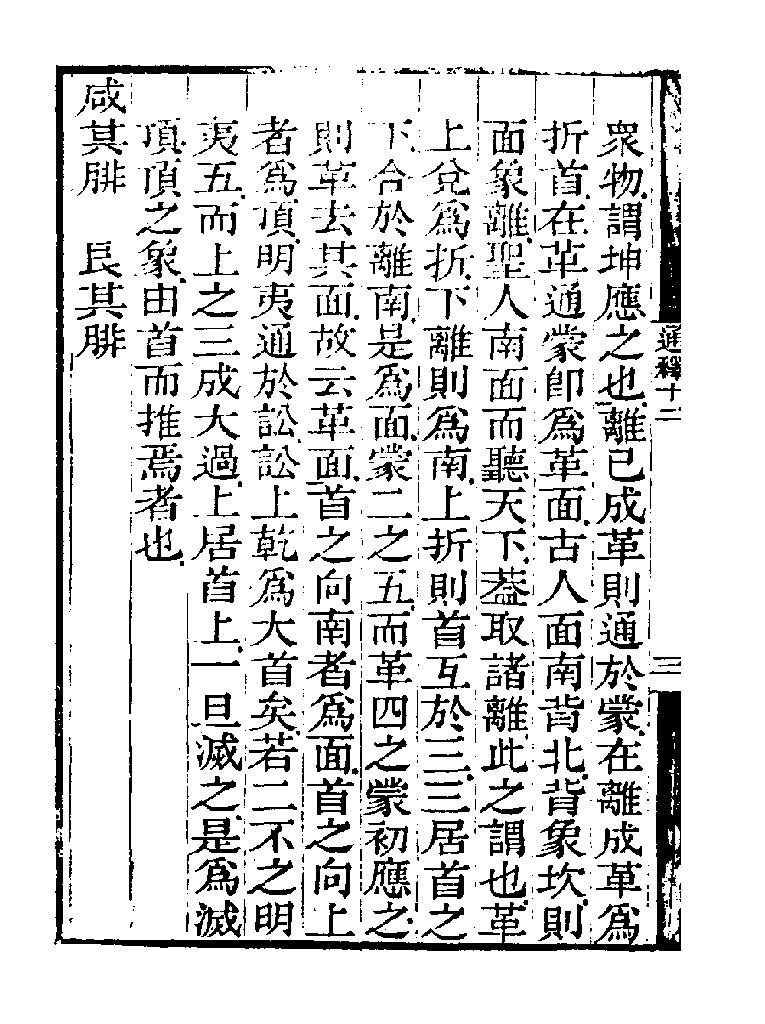 衆物謂坤應之也離已成革則通於蒙在離成革爲
折首在革通蒙卽爲革面古人面南背北背象坎則
面象離聖人南面而聽天下葢取諸離此之謂也革
上兌爲折下離則爲南上折則首互於三三居首之
下合於離南是爲面蒙二之五而革四之蒙初應之
則革去其面故云革面首之向南者爲面首之向上
者爲頂明夷通於訟訟上乾爲大首矣若二不之明
夷五而上之三成大過上居首上一旦滅之是爲滅
頂頂之象由首而推焉者也
咸其腓　艮其腓
通釋十二
三